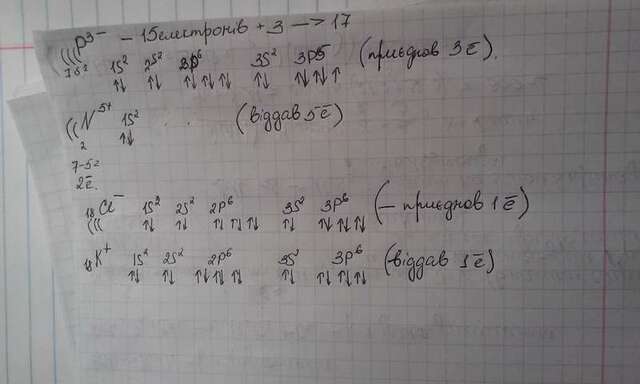 (((P³⁻ – 15електронів + 3 —> 17
1S² 1S² 2S² 3p⁶ 3S² 3P5 (приєднав 3ē).
↑↓ ↑↓ ↑↓ ↑↓ ↑↓ ↑↓ ↑↓ ↑↓ ↑
((N⁵⁺ 1S² (віддав 5ē)
2 ↑↓
7-5=
2ē.
₁₈Cl⁻ 1S² 2S² 2p⁶ 3S² 3p⁶ (– приєднав 1ē)
((( ↑↓ ↑↓ ↑↓ ↑↓ ↑↓ ↑↓ ↑↓ ↑↓ ↑↓
₁₈K⁺ 1S² 2S² 2p⁶ 3S² 3p⁶ (–віддав 1ē)
↑↓ ↑↓ ↑↓ ↑↓ ↑↓ ↑↓ ↑↓ ↑↓ ↑↓